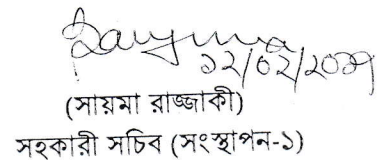 ১২/০২/২০১৭
(সায়মা রাজ্জাকী)
সহকারী সচিব (সংস্থাপন-১)